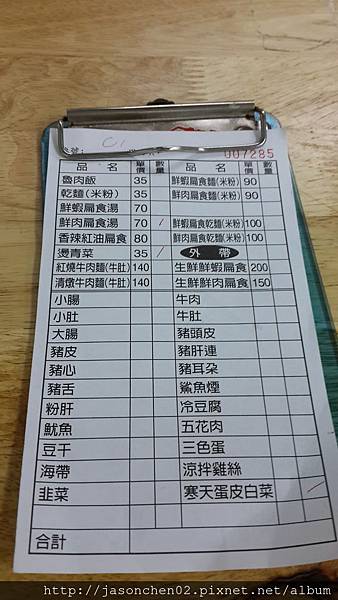 007285
品 名 單價 數量 品 名 單價 數量
魯肉飯 35 鮮蝦扁食麵(米粉) 90
乾麵(米粉) 35 鮮肉扁食麵(米粉) 90
鮮蝦扁食湯 70
鮮肉扁食湯 70 / 鮮蝦扁食乾麵(米粉) 100
香辣紅油扁食 80 鮮肉扁食乾麵(米粉) 100
燙青菜 35 / 外 帶
紅燒牛肉麵(牛肚) 140 生鮮鮮蝦扁食 200
清燉牛肉麵(牛肚) 140 生鮮鮮肉扁食 150
小腸 牛肉
小肚 牛肚
大腸 豬頭皮
豬皮 豬肝連
豬心 豬耳朶
豬舌 鯊魚煙
粉肝 冷豆腐
魷魚 五花肉
豆干 三色蛋
海帶 涼拌雞絲
韭菜 寒天蛋皮白菜 /
合計
http://jasonchen02.pixnet.net/album